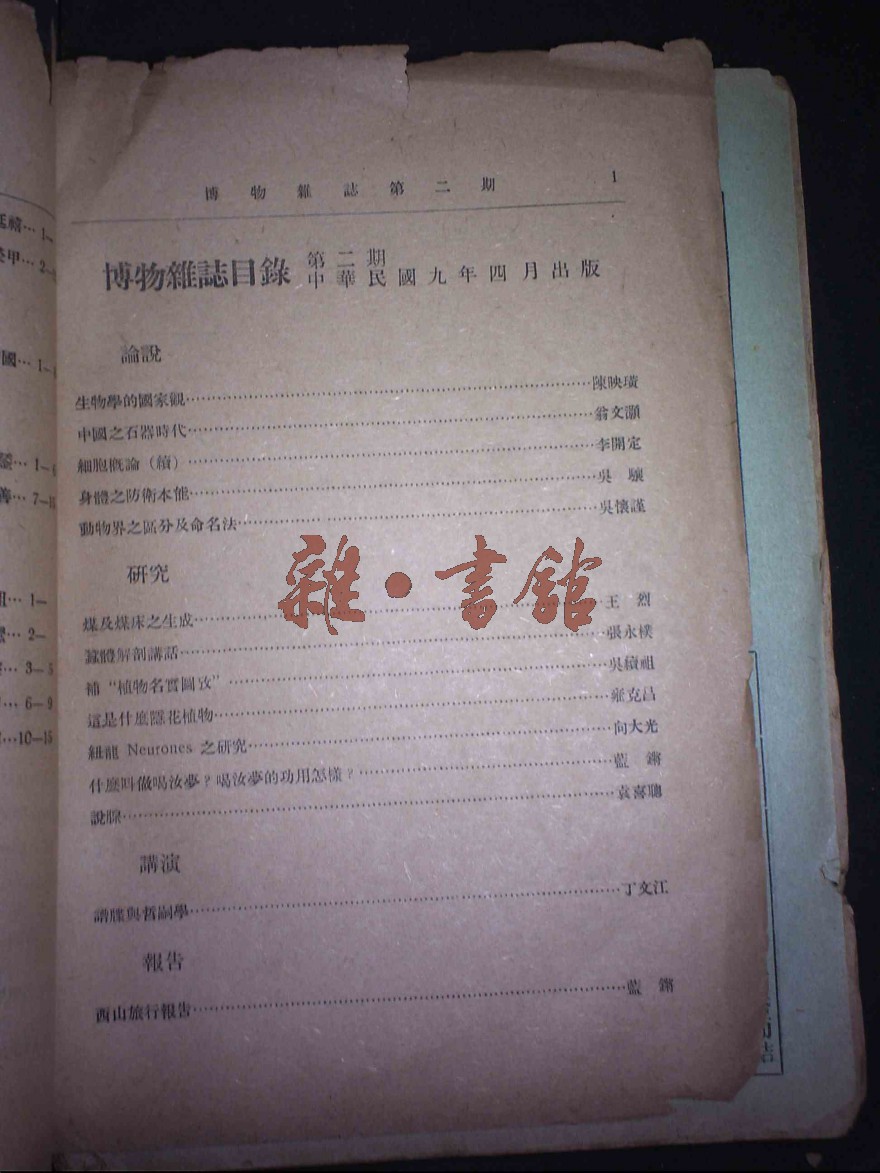 博物雜誌第二期 1
博物雜誌目錄 第二期
中華民國九年四月出版
論說
生物學的國家觀……陳映璜
中國之石器時代……翁文灝
細胞概論（續）……李開定
身體之防衛本能……吳驤
動物界之區分及命名法……吳懷謹
研究
煤及煤床之生成……王烈
蠶體解剖講話……張永樸
補“植物名實圖攷”……吳續祖
這是什麼隱花植物……雍克昌
紐龍 Neurones 之研究……向大光
什麼叫做喝汝夢？喝汝夢的功用怎樣？……藍鏘
說腺……袁喜聰
講演
譜牒與哲嗣學……丁文江
報告
西山旅行報告……藍鏘
雜·書館
國… 1–
… 2–
… 3–5
… 6–9
…10–15